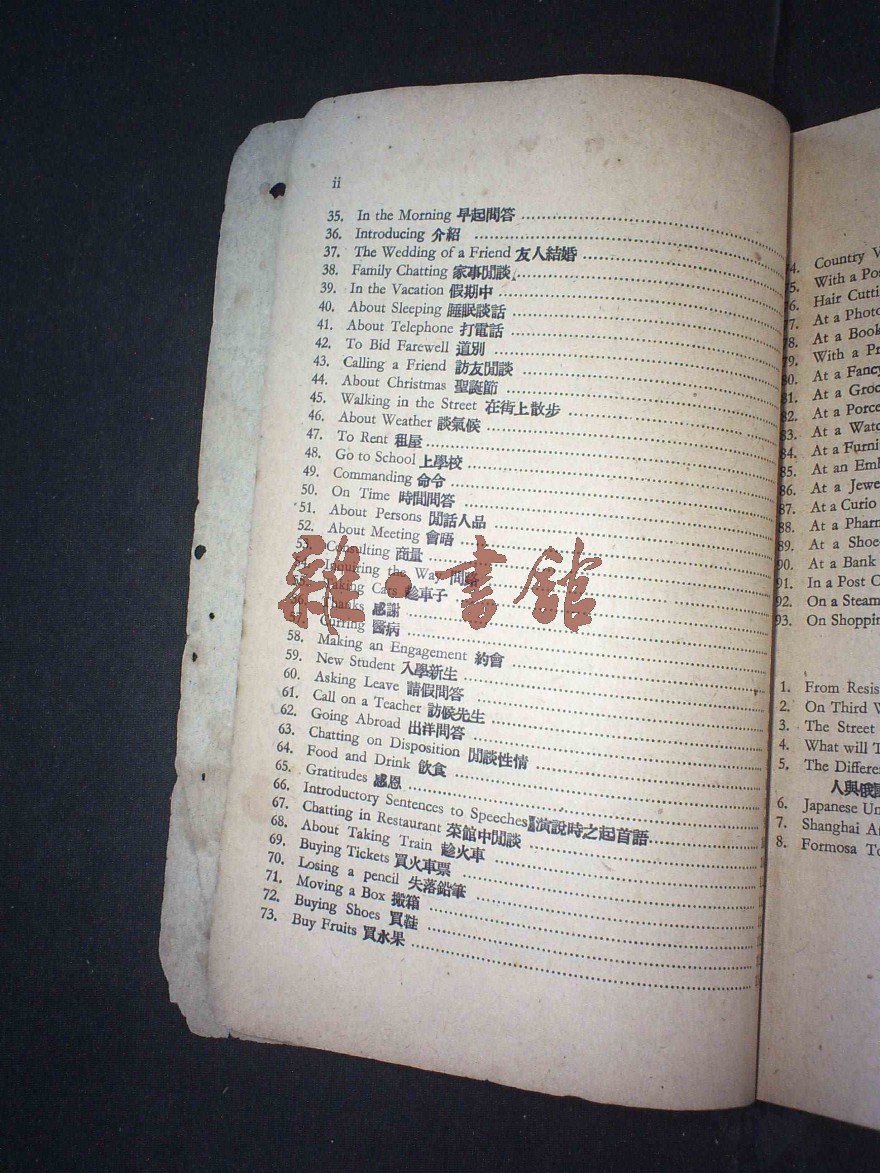 ii
35. In the Morning 早起問答
36. Introducing 介紹
37. The Wedding of a Friend 友人結婚
38. Family Chatting 家事閒談
39. In the Vacation 假期中
40. About Sleeping 睡眠談話
41. About Telephone 打電話
42. To Bid Farewell 道別
43. Calling a Friend 訪友閒談
44. About Christmas 聖誕節
45. Walking in the Street 在街上散步
46. About Weather 談氣候
47. To Rent 租屋
48. Go to School 上學校
49. Commanding 命令
50. On Time 時間問答
51. About Persons 閒話人品
52. About Meeting 會晤
53. Consulting 商量
54. Inquiring the Way 問路
55. Taking Cars 趁車子
56. Thanks 感謝
57. Curring 醫病
58. Making an Engagement 約會
59. New Student 入學新生
60. Asking Leave 請假問答
61. Call on a Teacher 訪候先生
62. Going Abroad 出洋問答
63. Chatting on Disposition 閒談性情
64. Food and Drink 飲食
65. Gratitudes 感恩
66. Introductory Sentences to Speeches 演說時之起首語
67. Chatting in Restaurant 菜館中閒談
68. About Taking Train 趁火車
69. Buying Tickets 買火車票
70. Losing a pencil 失落鉛筆
71. Moving a Box 搬箱
72. Buying Shoes 買鞋
73. Buy Fruits 買水果
雜·書館
74. Country
75. With a
76. Hair
77. At a
78. At a Book
79. With a
80. At a Fancy
81. At a
82. At a
83. At a
84. At a
85. At an
86. At a
87. At a Curio
88. At a
89. At a
90. At a Bank
91. In a Post
92. On a
93. On
1. From
2. On Third
3. The Street
4. What will
5. The
人與俄
6. Japanese
7. Shanghai
8. Formosa